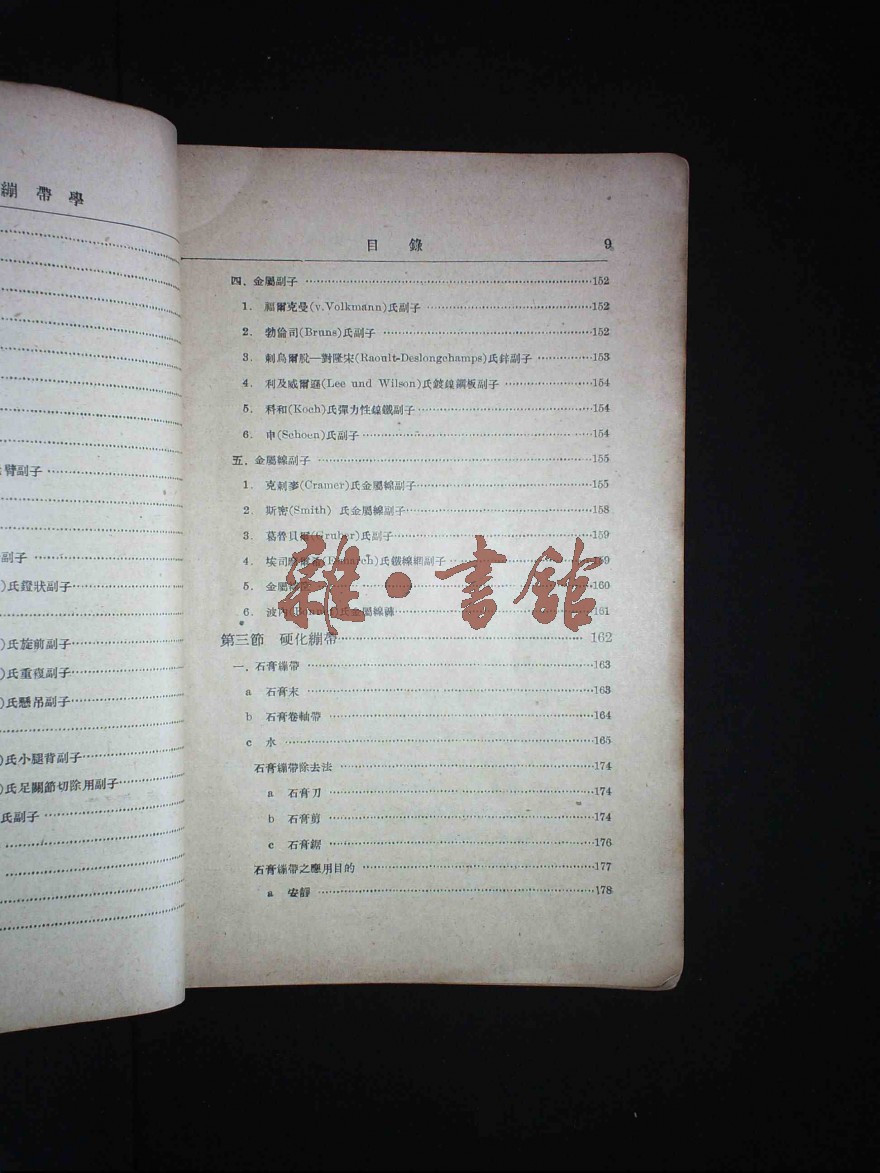 繃帶學
臂副子
副子
氏鐙狀副子
)氏旋前副子
)氏重複副子
)氏懸吊副子
)氏小腿背副子
)氏足關節切除用副子
氏副子
目 錄 9
四. 金屬副子 152
1. 福爾克曼(v.Volkmann)氏副子 152
2. 勃倫司(Bruns)氏副子 152
3. 剌烏爾脫—對隆宋(Raoult-Deslongchamps)氏鋅副子 153
4. 利及威爾遜(Lee und Wilson)氏鍍鎳鋼板副子 154
5. 科和(Koch)氏彈力性鎳鐵副子 154
6. 申(Schoen)氏副子 154
五. 金屬線副子 155
1. 克剌麥(Cramer)氏金屬線副子 155
2. 斯密(Smith) 氏金屬線副子 158
3. 葛魯貝爾(Gruber)氏副子 159
4. 埃司 (Esmarch)氏鐵線網副子 159
5. 金屬 160
6. 波內(Bonnet)氏金屬線褲 161
第三節 硬化繃帶 162
一. 石膏繃帶 163
a 石膏末 163
b 石膏卷軸帶 164
c 水 165
石膏繃帶除去法 174
a 石膏刀 174
b 石膏剪 174
c 石膏鋸 176
石膏繃帶之應用目的 177
a 安靜 178
雜·書館